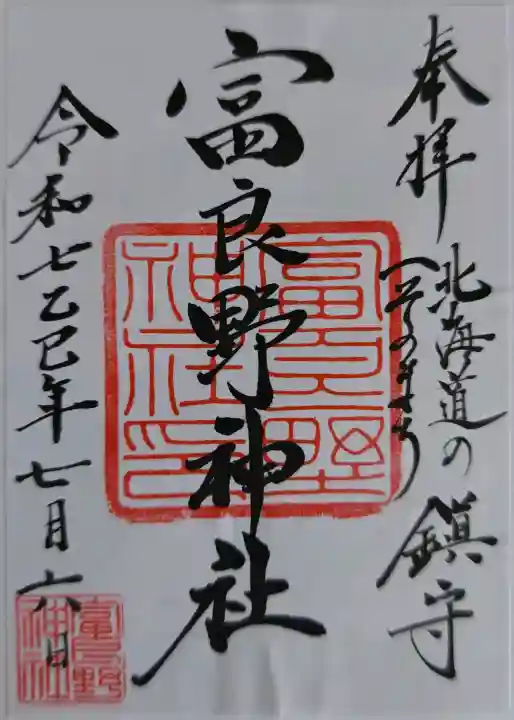 奉拝
北海道の
鎮守
富良野神社
富良野
神社印
令和七乙巳年七月六日
富良野
神社